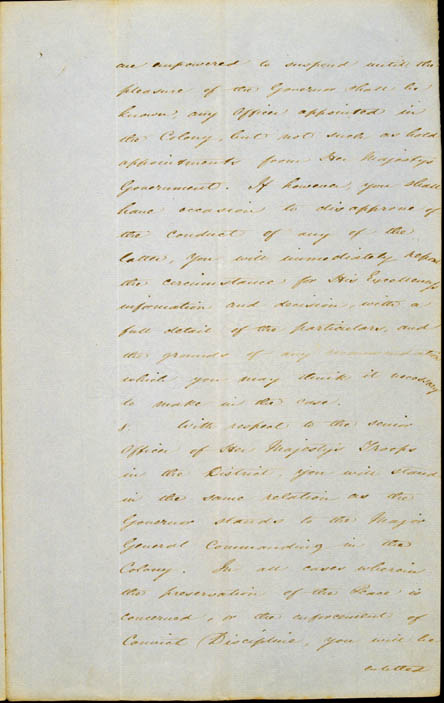 are empowered to suspend until the
pleasure of the Governor shall be
known, any Officer appointed in
the Colony, but not such as hold
appointments from Her Majesty's
Government. If however, you shall
have occasion to disapprove of
the conduct of any of the
latter, you will immediately report
the circumstance for His Excellency's
information and decision, with a
full detail of the particulars, and
the grounds of any recommendation
which you may think it necessary
to make in the case.
8. With respect to the senior
Officer of Her Majesty's Troops
in the District, you will stand
in the same relation as the
Governor stands to the Major
General Commanding in the
Colony. In all cases wherein
the preservation of the Peace is
concerned, or the enforcement of
Convict Discipline, you will be
entitled